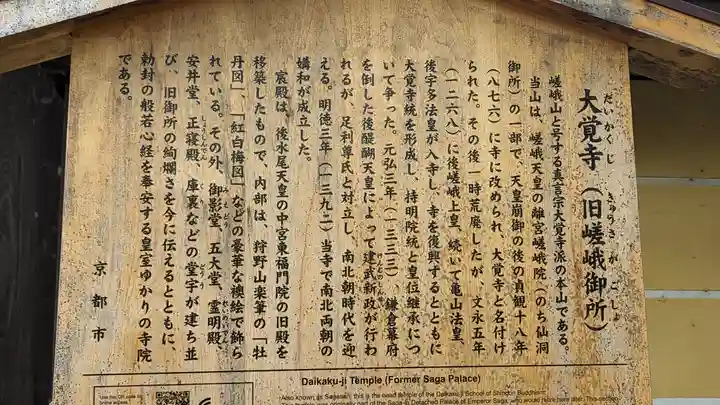 大覚寺（旧嵯峨御所）
だいかくじ
きゅうさがごしょ
嵯峨山と号する真言宗大覚寺派の本山である。
当山は、嵯峨天皇の離宮嵯峨院（のち仙洞
御所）の一部で、天皇崩御の後の貞観十八年
（八七六）に寺に改められ、大覚寺と名付け
られた。その後一時荒廃したが、文永五年
（一二六八）に後嵯峨上皇、続いて亀山法皇、
後宇多法皇が入寺し、寺を復興するとともに
大覚寺統を形成し、持明院統と皇位継承につ
いて争った。元弘三年（一三三三）、鎌倉幕府
を倒した後醍醐天皇によって建武新政が行わ
けんむしんせい
れるが、足利尊氏と対立し、南北朝時代を迎
える。明徳三年（一三九二）当寺で南北両朝の
媾和が成立した。
宸殿は、後水尾天皇の中宮東福門院の旧殿を
移築したもので、内部は、狩野山楽筆の「牡
丹図」、「紅白梅図」などの豪華な襖絵で飾ら
れている。その外、御影堂、五大堂、霊明殿、
みえどう
安井堂、正寝殿、庫裏などの堂宇が建ち並
しょうしんでん
くり
どうう
び、旧御所の絢爛さを今に伝えるとともに、
勅封の般若心経を奉安する皇室ゆかりの寺院
である。
京都市
Daikaku-ji Temple (Former Saga Palace)
Use this QR code to
Also known as Sagasan, this is the head temple of the Daikaku-ji School of Shingon Buddhism.